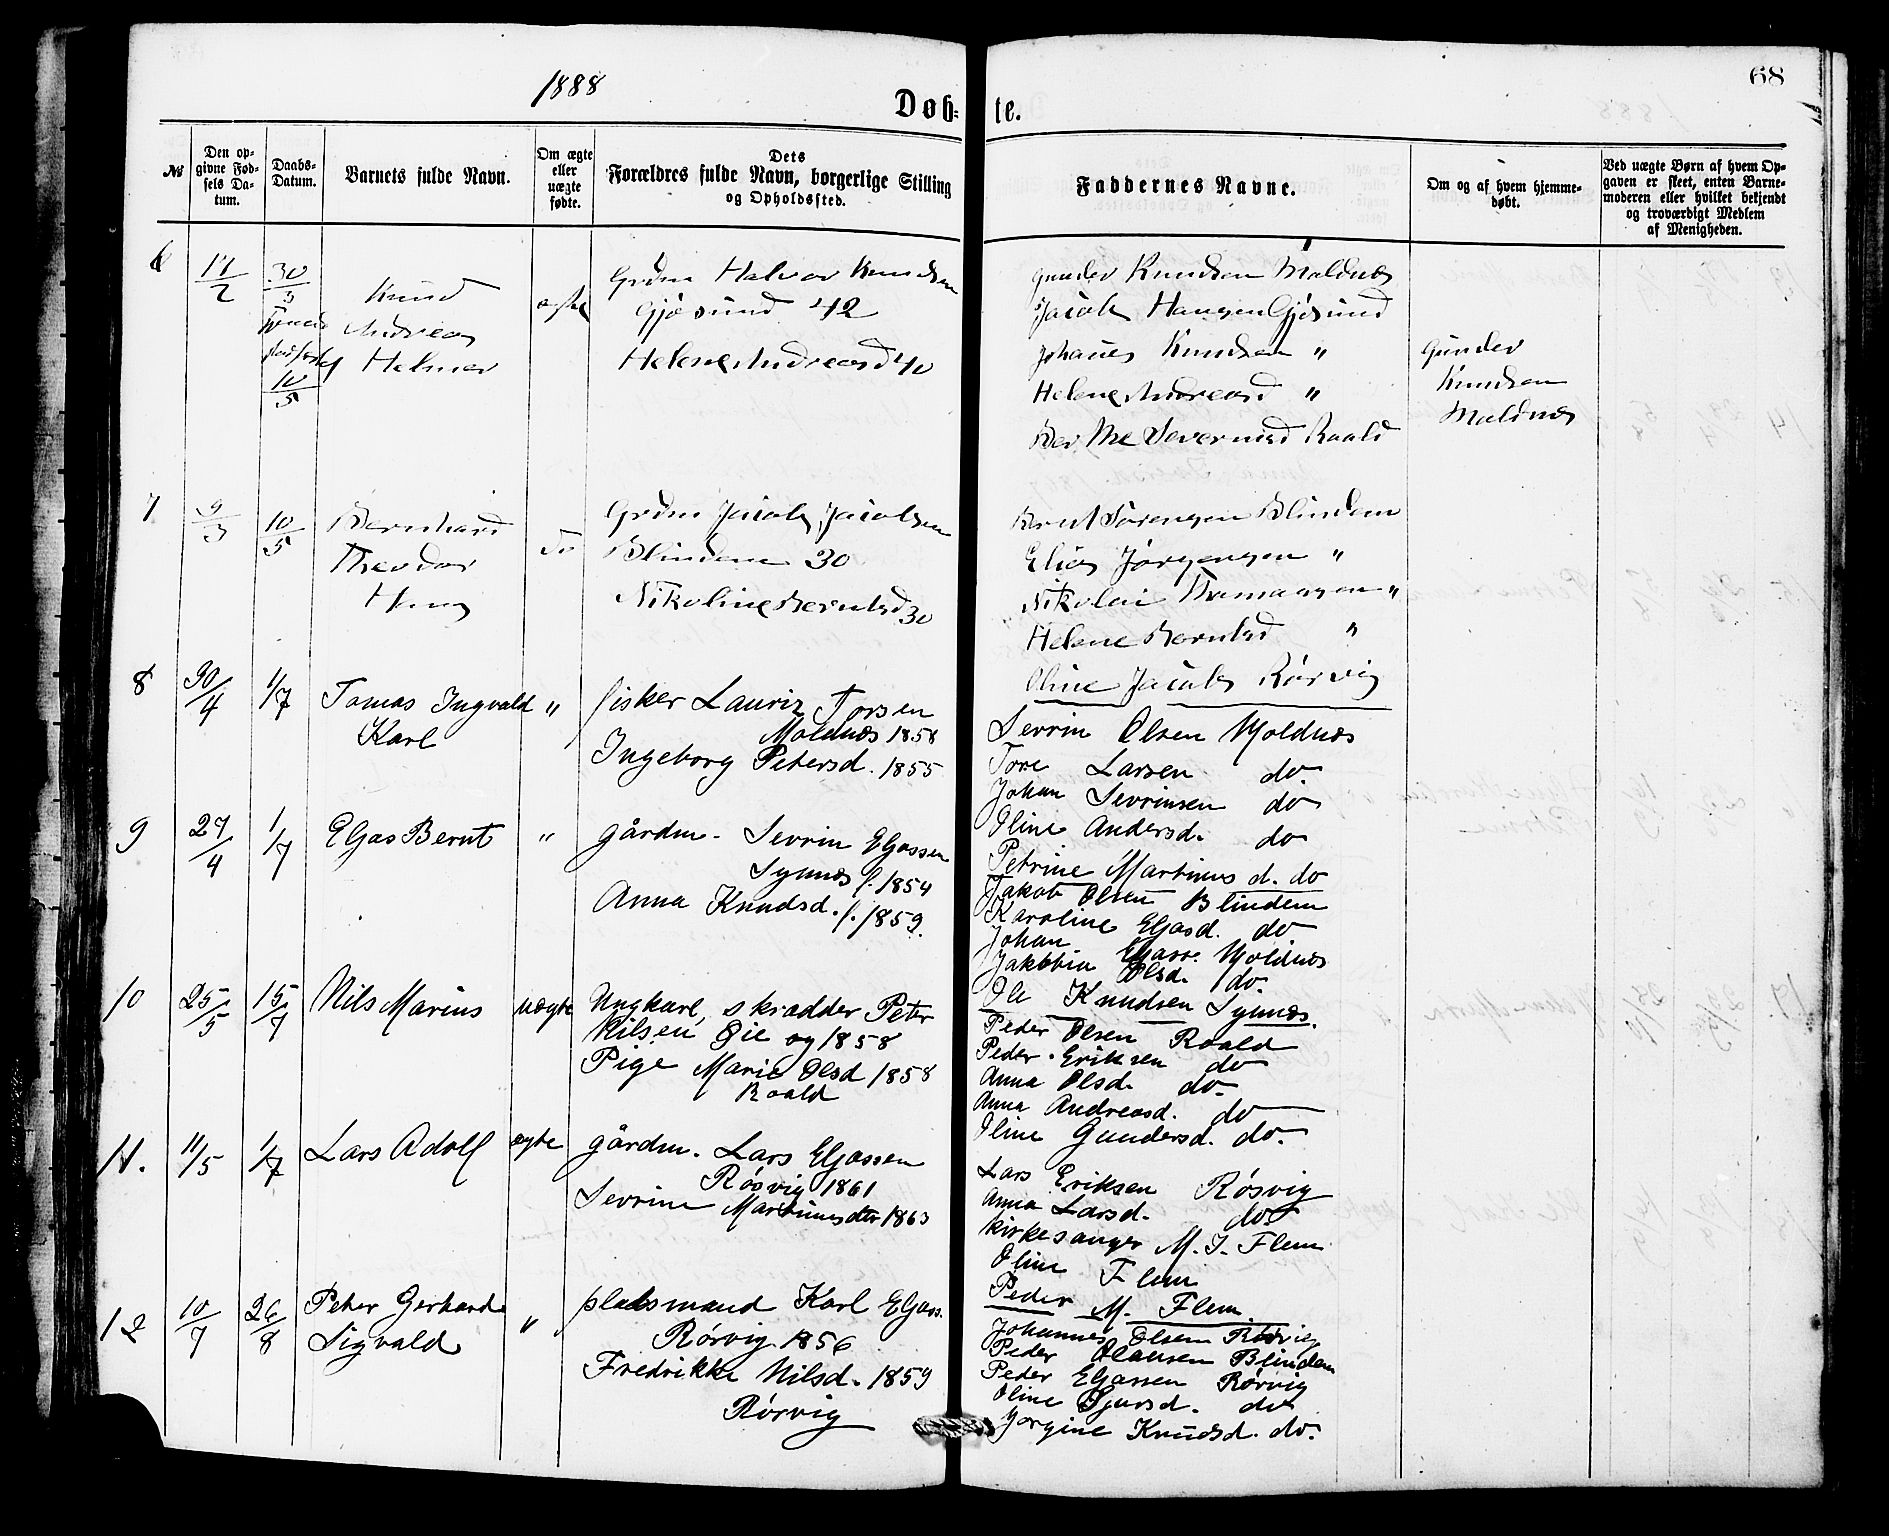 1888
68
Døb-
te.
№
Den op-
givne Fød-
sels Da-
tum.
Daabs-
Datum.
Barnets fulde Navn.
Om ægte
eller
uægte
fødte.
Dets
Forældres fulde Navn, borgerlige Stilling
og Opholdssted.
Faddernes Navne.
Om og af hvem hjemme-
døbt.
Ved uægte Børn af hvem Op-
gaven er skeet, enten Barne-
moderen eller hvilket bekjendt
og troværdigt Medlem
af Menigheden.
6
30/3
10/5
Knud
Andreas
Helmer
ægte
Grdm Halvor Knudsen
Gjøsund 42
Helene Andreasd 40
Gunder Knudsen Moldnes
Jacob Hansen Gjøsund
Johannes Knudsen "
Helene Andreasd "
Berthe Severinsd Roald
Gunder
Knudsen
Moldnes
7
9/3
10/5
Bernhard
Theodor
do
Grdm Jacob Jacobsen
Blindem 30
Nikoline Berntsd 30
Bernt Sørensen Blindem
Elias Jørgensen "
Nikolai Thomassen "
Helene Berntsd "
Oline Jacobs Rørvig
8
30/4
1/7
Tomas Ingvald
Karl
"
fisker Lauriz Torsen
Moldnæs 1858
Ingeborg Petersd. 1855
Sevrin Olsen Moldnæs
Tore Larsen do.
Johan Sevrinsen do
Oline Andersd. do
Petrine Martinus d. do
9
27/4
1/7
Eljas Bernt
"
gårdm. Sevrin Eljassen
Synnæs f. 1854
Anna Knudsd. f. 1859.
Jakob Olsen Blindem
Karoline Eljasd. do
Johan Eljass. Moldnæs
Jakobia Olsd. do.
Ole Knudsen Synnæs.
10
25/5
15/7
Nils Marius
uægte
Ungkarl, skrædder Peter
Nilsen Øie og 1858
Pige Marie Olsd 1858
Roald
Peder Olsen Roald
Peder Eriksen do
Anna Olsd. do.
Anna Andreasd. do
Oline Gundersd. do.
11.
11/5
1/7
Lars Adolf
ægte
gårdm. Lars Eljassen
Røsvig 1861
Sevrine Martinusdtr 1863
Lars Eriksen Røsvig
Anna Larsd. do
kirkesanger M. J. Flem
Oline Flem
Peder M. Flem
12
10/7
26/8
Peter Gerhard
Sigvald
"
pladsmand Karl Eljass.
Rørvig 1856
Fredrikke Nilsd. 1859
Rørvig
Johannes Olsen Rørvig
Peder Olausen Blindem
Peder Eljassen Rørvig
Oline Sjursd. do
Jørgine Knudsd. do.